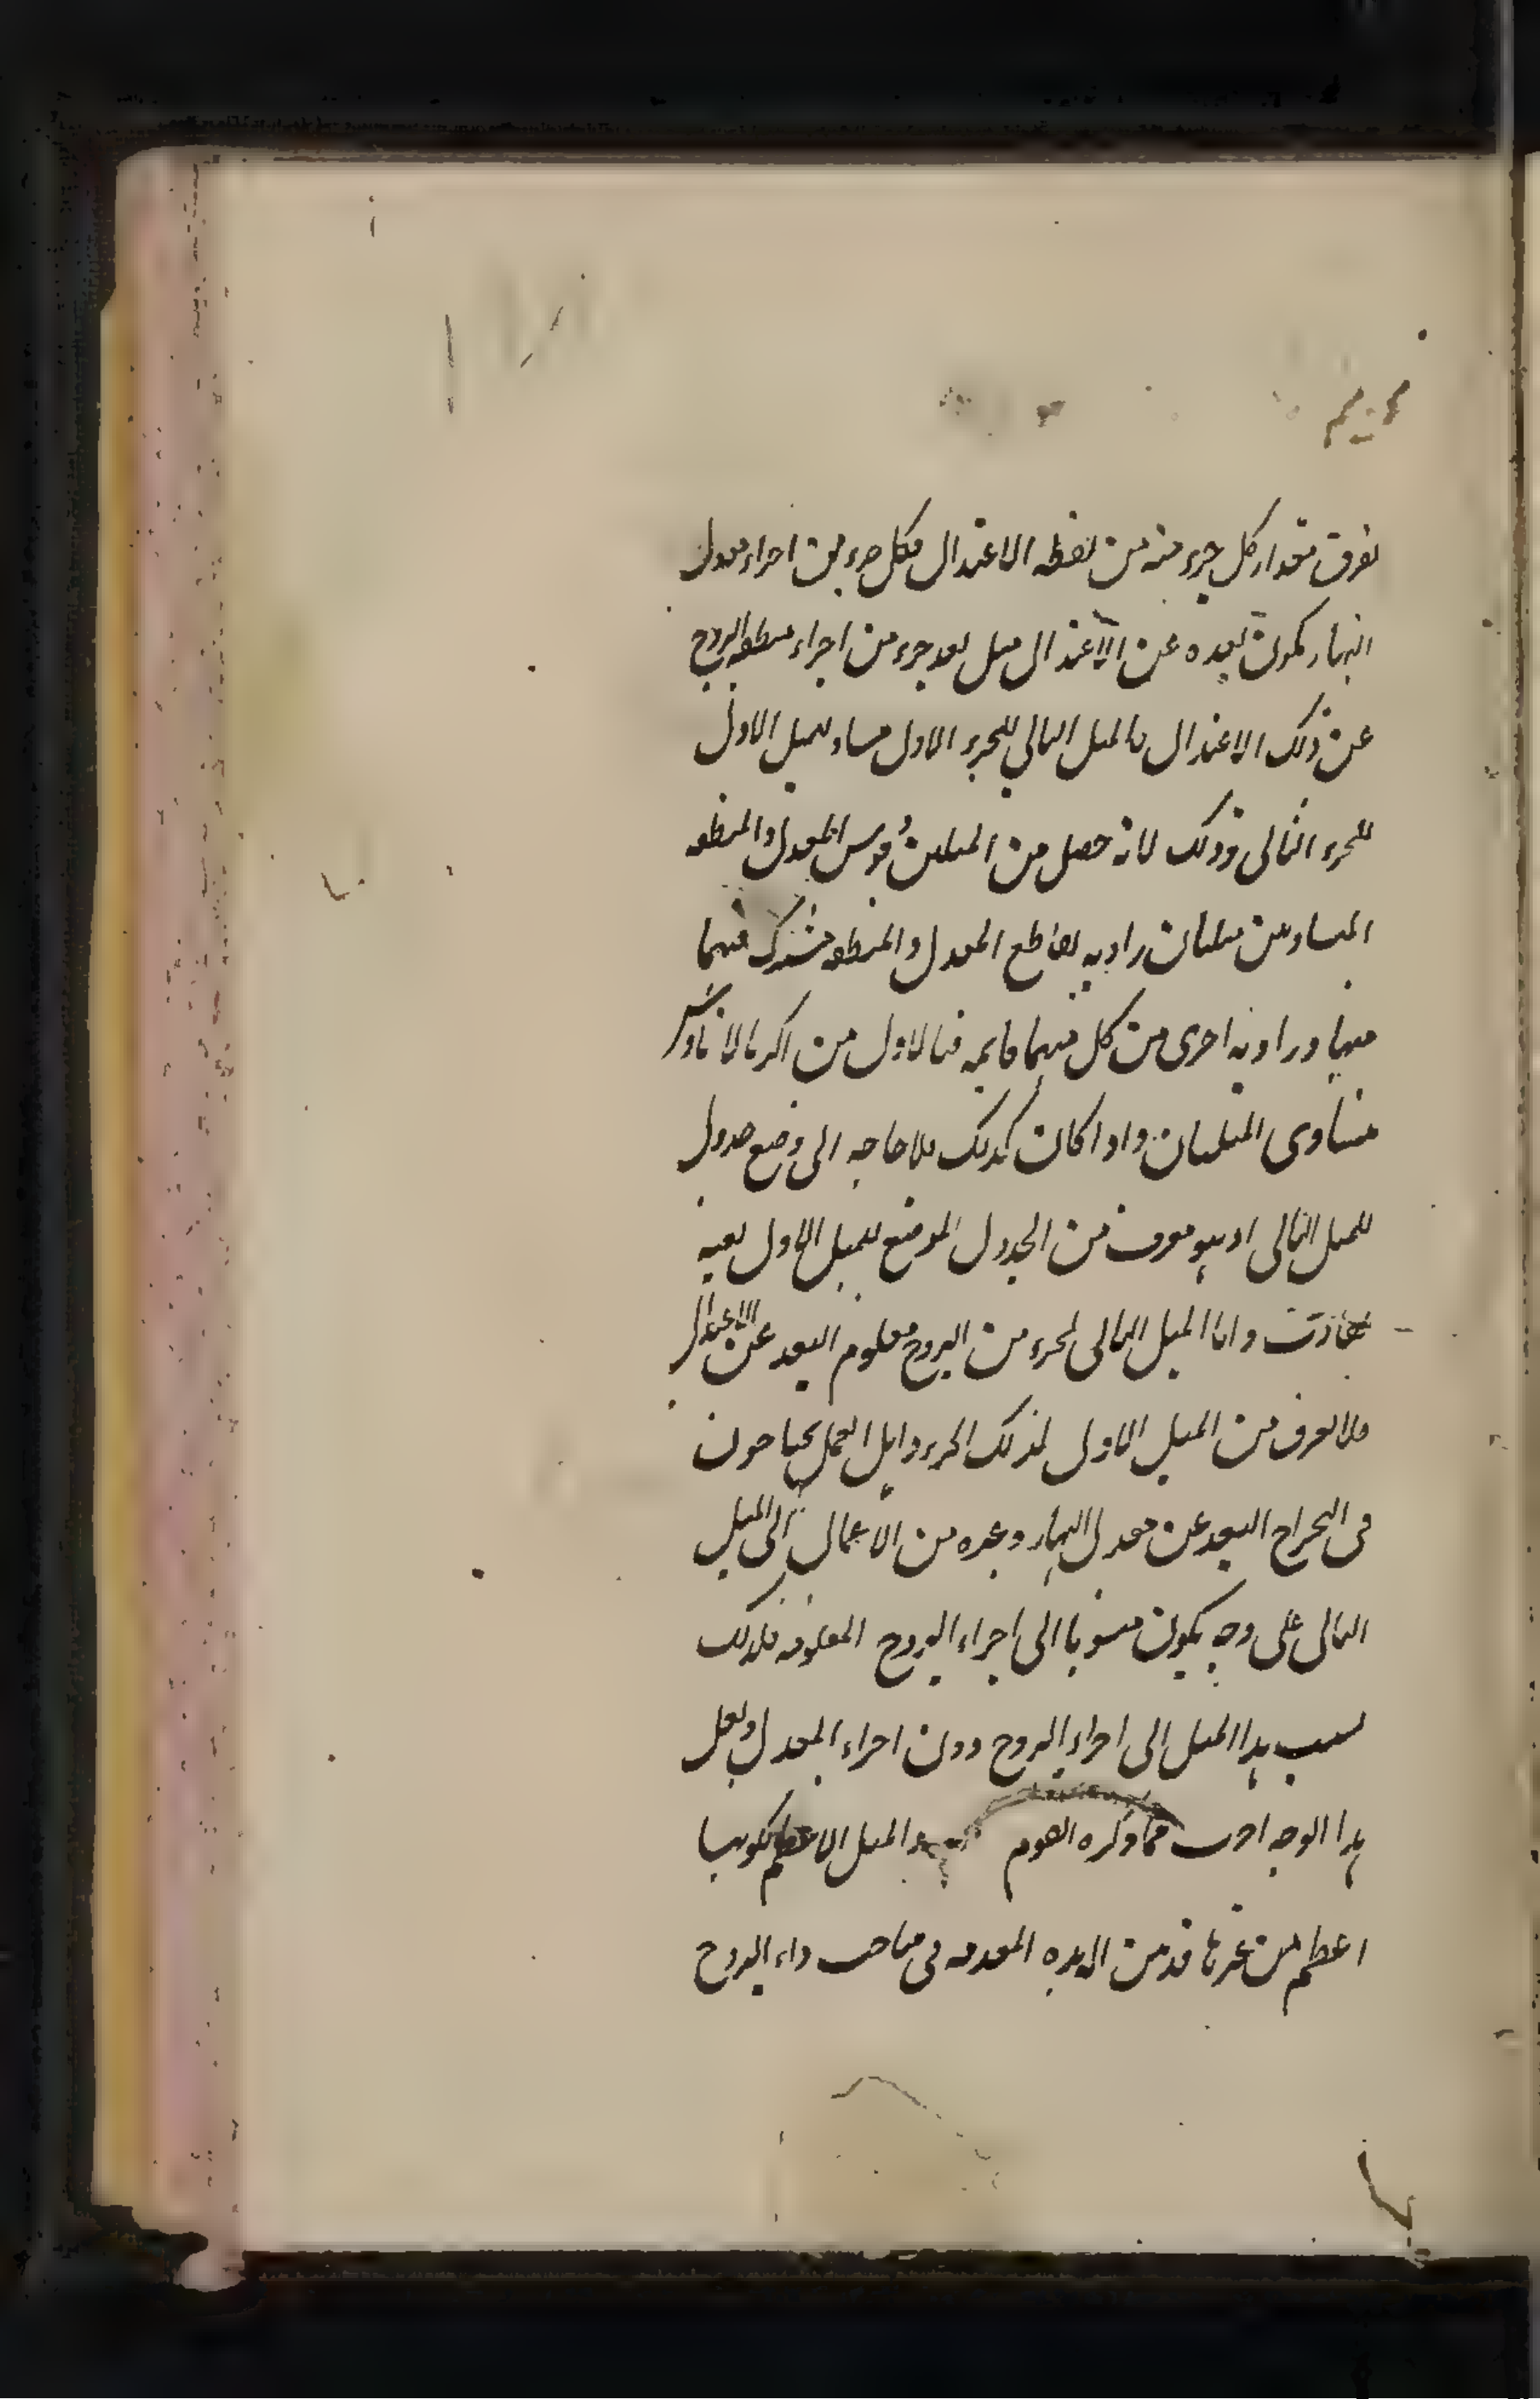 بفرق مقدار كل جزء منه من نقطه الاعتدال فكل جزء من اجزاء معدل
النهار يكون بعده عن الاعتدال مثل بعد جزء من اجزاء منطقه البروج
عن ذلك الاعتدال فالميل الثاني للجزء الاول مساو للميل الاول
للجزء الثاني وذلك لانه حصل من الميلين و قوس المعدل والمنطقه
المساويين مثلثان زاويه تقاطع المعدل والمنطقه مشترك فيهما
منها وزاويه اخرى من كل منهما قايمه فبالاول من اكر مالاناوس
يتساوى المثلثان واذا كان كذلك فلا حاجه الى وضع جدول
للميل الثاني اذ هو معروف من الجدول الموضع للميل الاول بعينه
بتفاوت واما الميل الثاني لجزء من البروج معلوم البعد عن الاعتدال
فلا يعرف من الميل الاول لذلك الجزء واهل العمل يحتاجون
فى استخراج البعد عن معدل النهار وغيره من الاعمال الى الميل
الثاني على وجه يكون منسوبا الى اجزاء البروج المعلومه فلذلك
نسب هذا الميل الى اجزاء البروج دون اجزاء المعدل ولعل
هذا الوجه اقرب مما ذكره القوم والميل الاعظم لكونها
اعظم من غيرها قد من الدايره المعدمه فى مباحث داء البروج